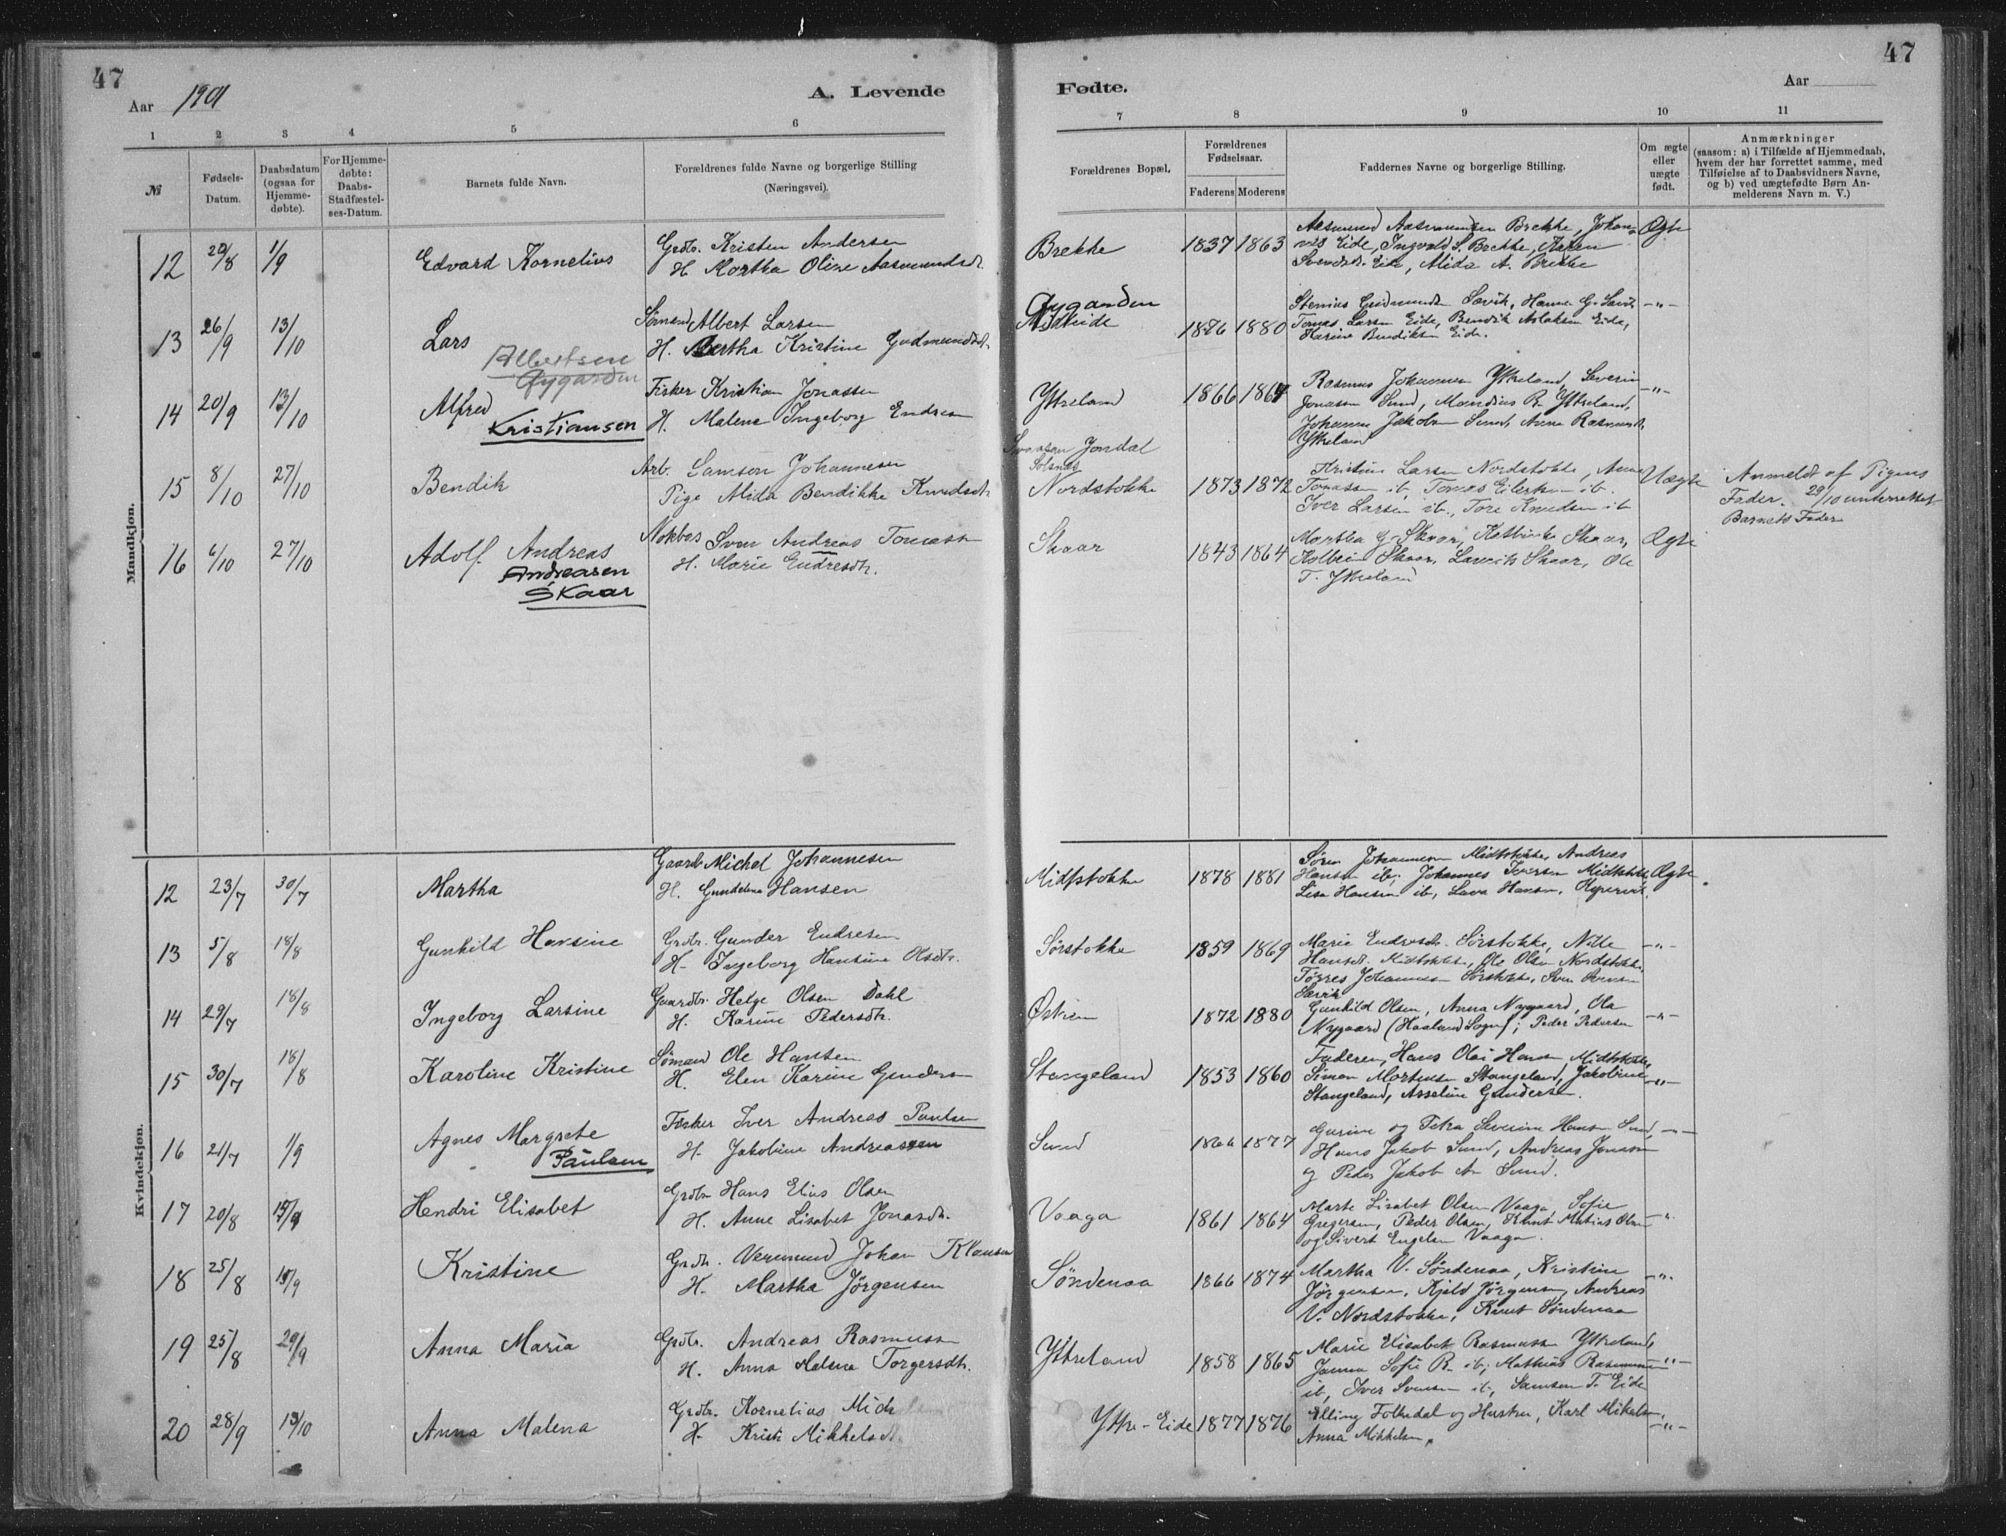 47
Aar 1901
A. Levende
1 2 3 4 5 6
№
Fødsels-Datum.
Daabsdatum (ogsaa for Hjemme-døbte).
For Hjemme-døbte: Daabs-Stadfæstel-ses-Datum.
Barnets fulde Navn.
Forældrenes fulde Navne og borgerlige Stilling
(Næringsvei).
Mandkjøn.
12 29/8 1/9 Edvard Kornelius
Grdbr. Kristen Andersen
H. Martha Oline Aasmundsdt.
13 26/9 13/10 Lars
Albertsen
Øygarden
Sømand Albert Larsen
H. Martha Kristine Gudmundsdt.
14 20/9 13/10 Alfred
Kristiansen
Fisker Kristian Jonassen
H. Malene Ingeborg Endresen
15 8/10 27/10 Bendik
Arb. Samson Johannesen
Pige Alida Bendikke Knudsdtr
16 6/10 27/10 Adolf Andreas
Andreasen
Skaar
Notbas Sven Andreas Tomassen
H. Marie Endresdtr.
Kvindekjøn.
12 23/7 30/7 Martha
Gaardb. Michal Johannesen
H. Gundelena Hansen
13 5/8 18/8 Gunhild Hansine
Grdbr. Gunder Endresen
H. Ingeborg Hansine Olsdtr.
14 29/7 18/8 Ingeborg Larsine
Gaardbr. Helge Olsen Dahl
H. Karine Pedersdtr.
15 30/7 18/8 Karoline Kristine
Sømand Ole Hansen
H. Elen Karine Gundersen
16 21/7 1/9 Agnes Margrete
Paulsen
Fisker Iver Andreas Paulsen
H. Jakobine Andreassen
17 20/8 15/9 Hendri Elisabet
Grdbr. Hans Elias Olsen
H. Anne Lisabet Jonasdtr.
18 25/8 15/9 Kristine
Grdbr. Veremund Johan Klausen
H. Martha Jørgensen
19 25/8 29/9 Anna Maria
Grdbr. Andreas Rasmussen
H. Anna Malena Torgersdtr.
20 28/9 13/10 Anna Malena
Grdbr. Kornelius Mich
H. Kristi Mikkelsdt.
47
Fødte.
Aar
7 8 9 10 11
Forældrenes Bopæl.
Forældrenes Fødselsaar.
Faderens Moderens
Faddernes Navne og borgerlige Stilling.
Om ægte eller uægte født.
Anmærkninger
(saasom: a) i Tilfælde af Hjemmedaab,
hvem der har forrettet samme, med
Tilføielse af to Daabsvidners Navne,
og b) ved uægtefødte Børn An-
melderens Navn m. V.)
Brekke 1837 1863
Aasmund Aasmundsen Brekke, Johan-
nes Eide, Ingvald S. Brekke, Karen
Svendsdt. Eide, Alida A. Brekke
Ægte
Øygarden
1876 1880
Stenius Gudmundsen Sævik, Hanne G. Sævik
Tomas Larsen Eide, Bendik Aslaksen Eide,
Karine Bendiksen Eide.
-"-
Yttreland 1866 1864
Rasmus Johannesen Yttreland, Severin
Jonassen Sund, Mandius R. Yttreland,
Johannes Jakobsen Sund, Anna Rasmusdt.
Yttreland
-"-
Jondal
Nordstokke 1873 1872
Kristine Larsen Nordstokke, Anna
Tomassen ib, Tomas Eilertsen ib.
Iver Larsen ib., Tore Knudsen ib
Uægte
Anmeldt af Pigens
Fader. 29/10 underrettet
Barnets Fader
Skaar 1843 1864
Martha G. Skaar, Kathinka Skaar,
Kolbein Skaar, Laurits Skaar, Ole
T. Yttreland
Ægte
Midtstokke 1878 1881
Søren Johannesen Midtstokke, Andreas
Hansen ib, Johannes Iversen Midtstokke
Lisa Hansen ib, Lava Hansen, Kopervik.
Ægte.
Sørstokke 1859 1869
Marie Endresdt. Sørstokke, Nille
Hansdt. Midtstokke, Ole Olsen Nordstokke,
Tørres Johannesen Sørstokke, Sven Svensen
Sævik
-"-
1872 1880
Gunhild Olsen, Anna Nygaard, Ole
Nygaard (Haaland Sogn); Peder Pedersen
-"-
Stangeland 1853 1860
Faderen, Hans Olai Hansen Midtstokke,
Simon Mortensen Stangeland, Jakobine
Stangeland, Asseline Gundersen.
-"-
Sund 1866 1877
Gurine og Petra Severine Hansen Sund,
Hans Jakob Sund, Andreas Jonassen
og Peder Jakob An Sund.
-"-
Vaaga 1861 1864
Marte Lisabet Olsen Vaaga, Sofie
Gregersen, Peder Olsen, Knut Matias Olsen
og Sivert Engelsen Vaaga.
-"-
Søndenaa 1866 1874
Martha V. Søndenaa, Kristine
Jørgensen, Kjeld Jørgensen, Andreas
V. Nordstokke, Knut Søndenaa
-"-
Yttreland 1858 1865
Marie Elisabet Rasmussen Yttreland,
Janna Sofie R. ib, Mathias Rasmussen
ib, Iver Svensen ib, Samson T. Eide
-"-
Ytre-Eide 1877 1876
Elling Folkedal og Hustru, Karl Mikelsen,
Anna Mikkelsen.
-"-